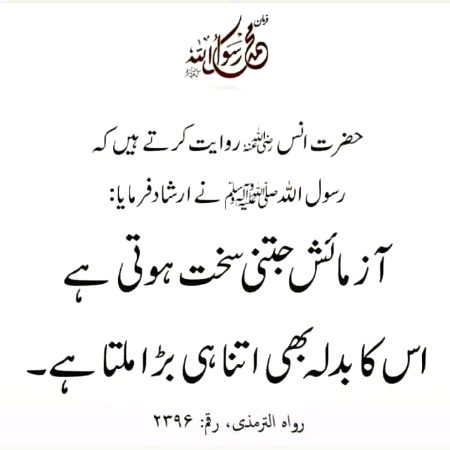 فرمان
محمد رسول اللہ ﷺ
حضرت انس رضی اللہ عنہ روایت کرتے ہیں کہ
رسول اللہ صلی اللہ علیہ وآلہ وسلم نے ارشاد فرمایا:
آزمائش جتنی سخت ہوتی ہے
اس کا بدلہ بھی اتنا ہی بڑا ملتا ہے۔
رواہ الترمذی، رقم: ۲۳۹۶